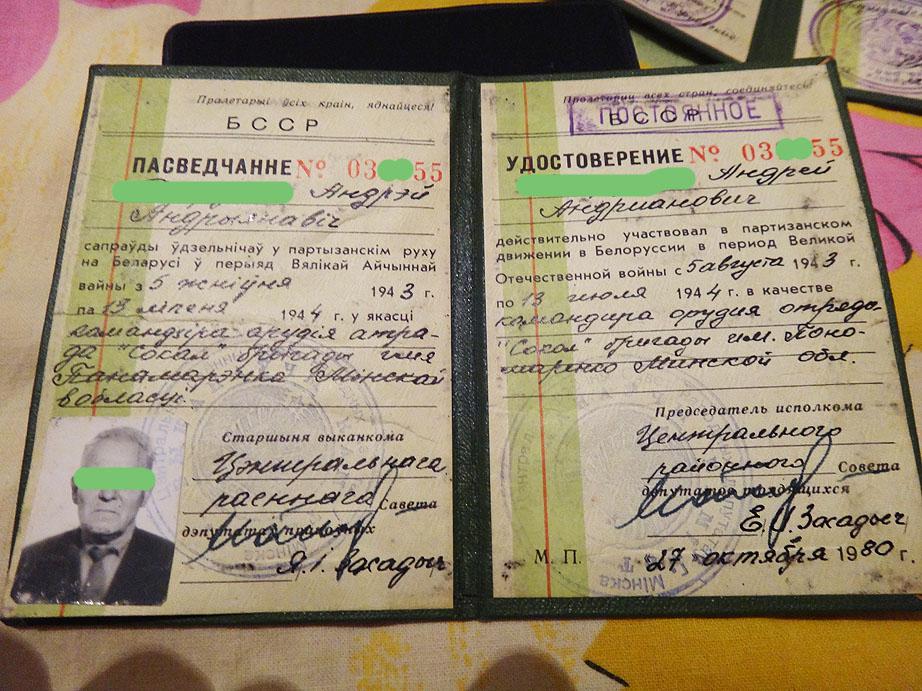 Пралетарыі ўсіх краін, яднайцеся!
БССР
ПАСВЕДЧАННЕ № 03 55
Андрэй
Андрыянавіч
сапраўды ўдзельнічаў у партызанскім руху
на Беларусі ў перыяд Вялікай Айчыннай
вайны з 5 жніўня 1943 г.
па 13 ліпеня 1944 г. у якасці
камандзіра орудія атра-
да "Сокал" брыгады імя
Панамарэнка Мінскай
вобласці.
Старшыня выканкома
Цэнтральнага
раённага Савета
дэпутатаў працоўных
Я.І. Захадыч
Пролетарии всех стран, соединяйтесь!
БССР
ПОСТОЯННОЕ
УДОСТОВЕРЕНИЕ № 03 55
Андрей
Андрианович
действительно участвовал в партизанском
движении в Белоруссии в период Великой
Отечественной войны с 5 августа 1943 г.
по 13 июля 1944 г. в качестве
командира орудия отряда
"Сокол" бригады им. Поно-
маренко Минской обл.
Председатель исполкома
Центрального
районного Совета
депутатов трудящихся
Е.И. Захадыч
М. П. "27" октября 1980 г.